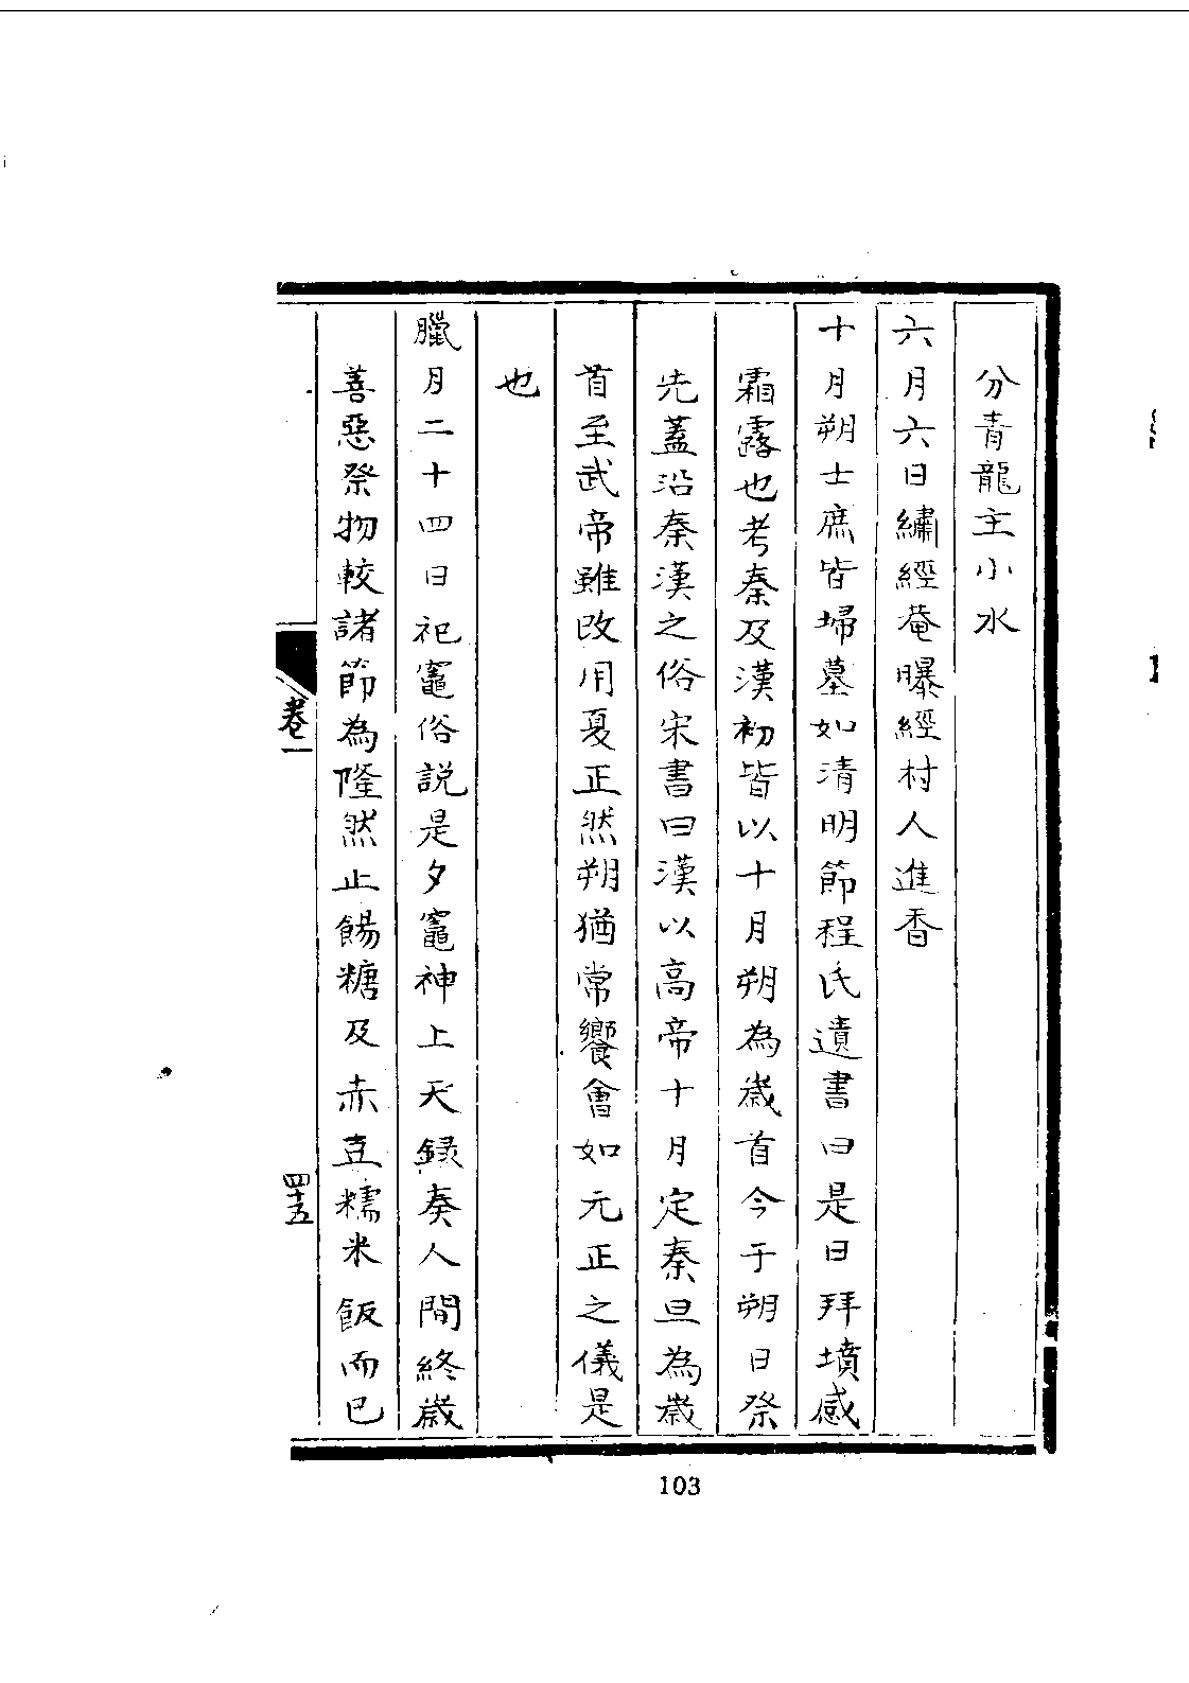 分青龍主小水
六月六日繡經菴曝經村人進香
十月朔士庶皆埽墓如清明節程氏遺書曰是日拜墳感
霜露也考秦及漢初皆以十月朔為歲首今于朔日祭
先蓋沿秦漢之俗宋書曰漢以高帝十月定秦旦為歲
首至武帝雖改用夏正然朔猶常饗會如元正之儀是
也
臘月二十四日祀竈俗說是夕竈神上天錄奏人間終歲
善惡祭物較諸節為隆然止餳糖及赤豆糯米飯而已
卷一
四十五
103